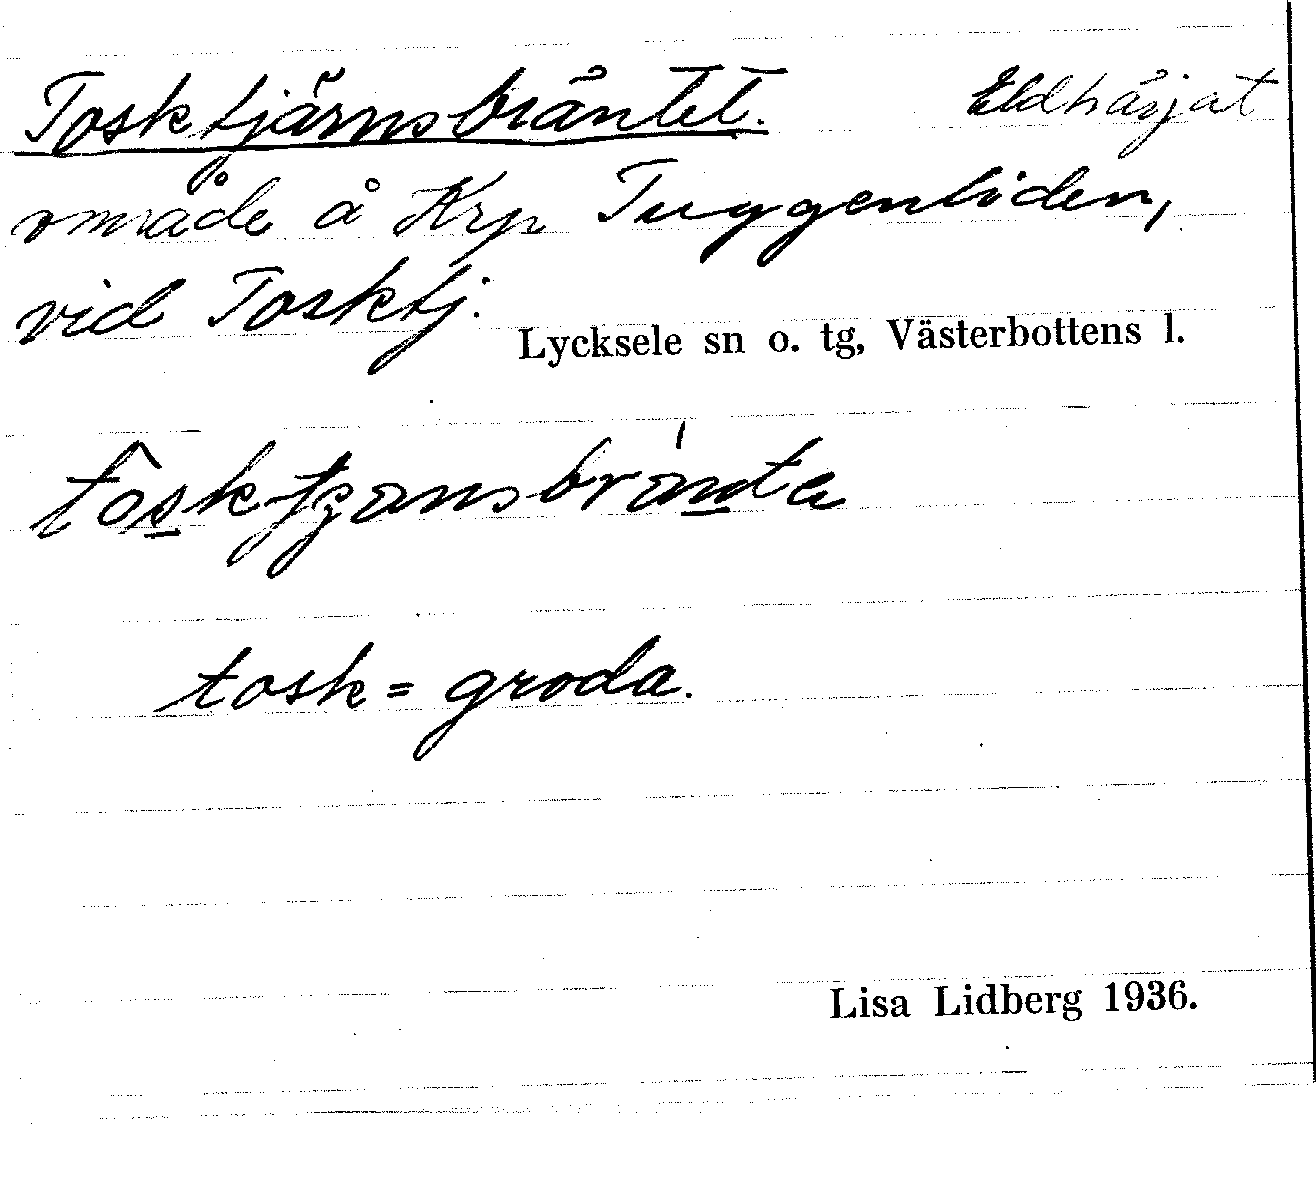 Tosktjärnsbräntet. Eldhärjat
område å Krp Tuggenliden,
vid Tosktj.
Lycksele sn o. tg, Västerbottens l.
tosk = groda.
Lisa Lidberg 1936.